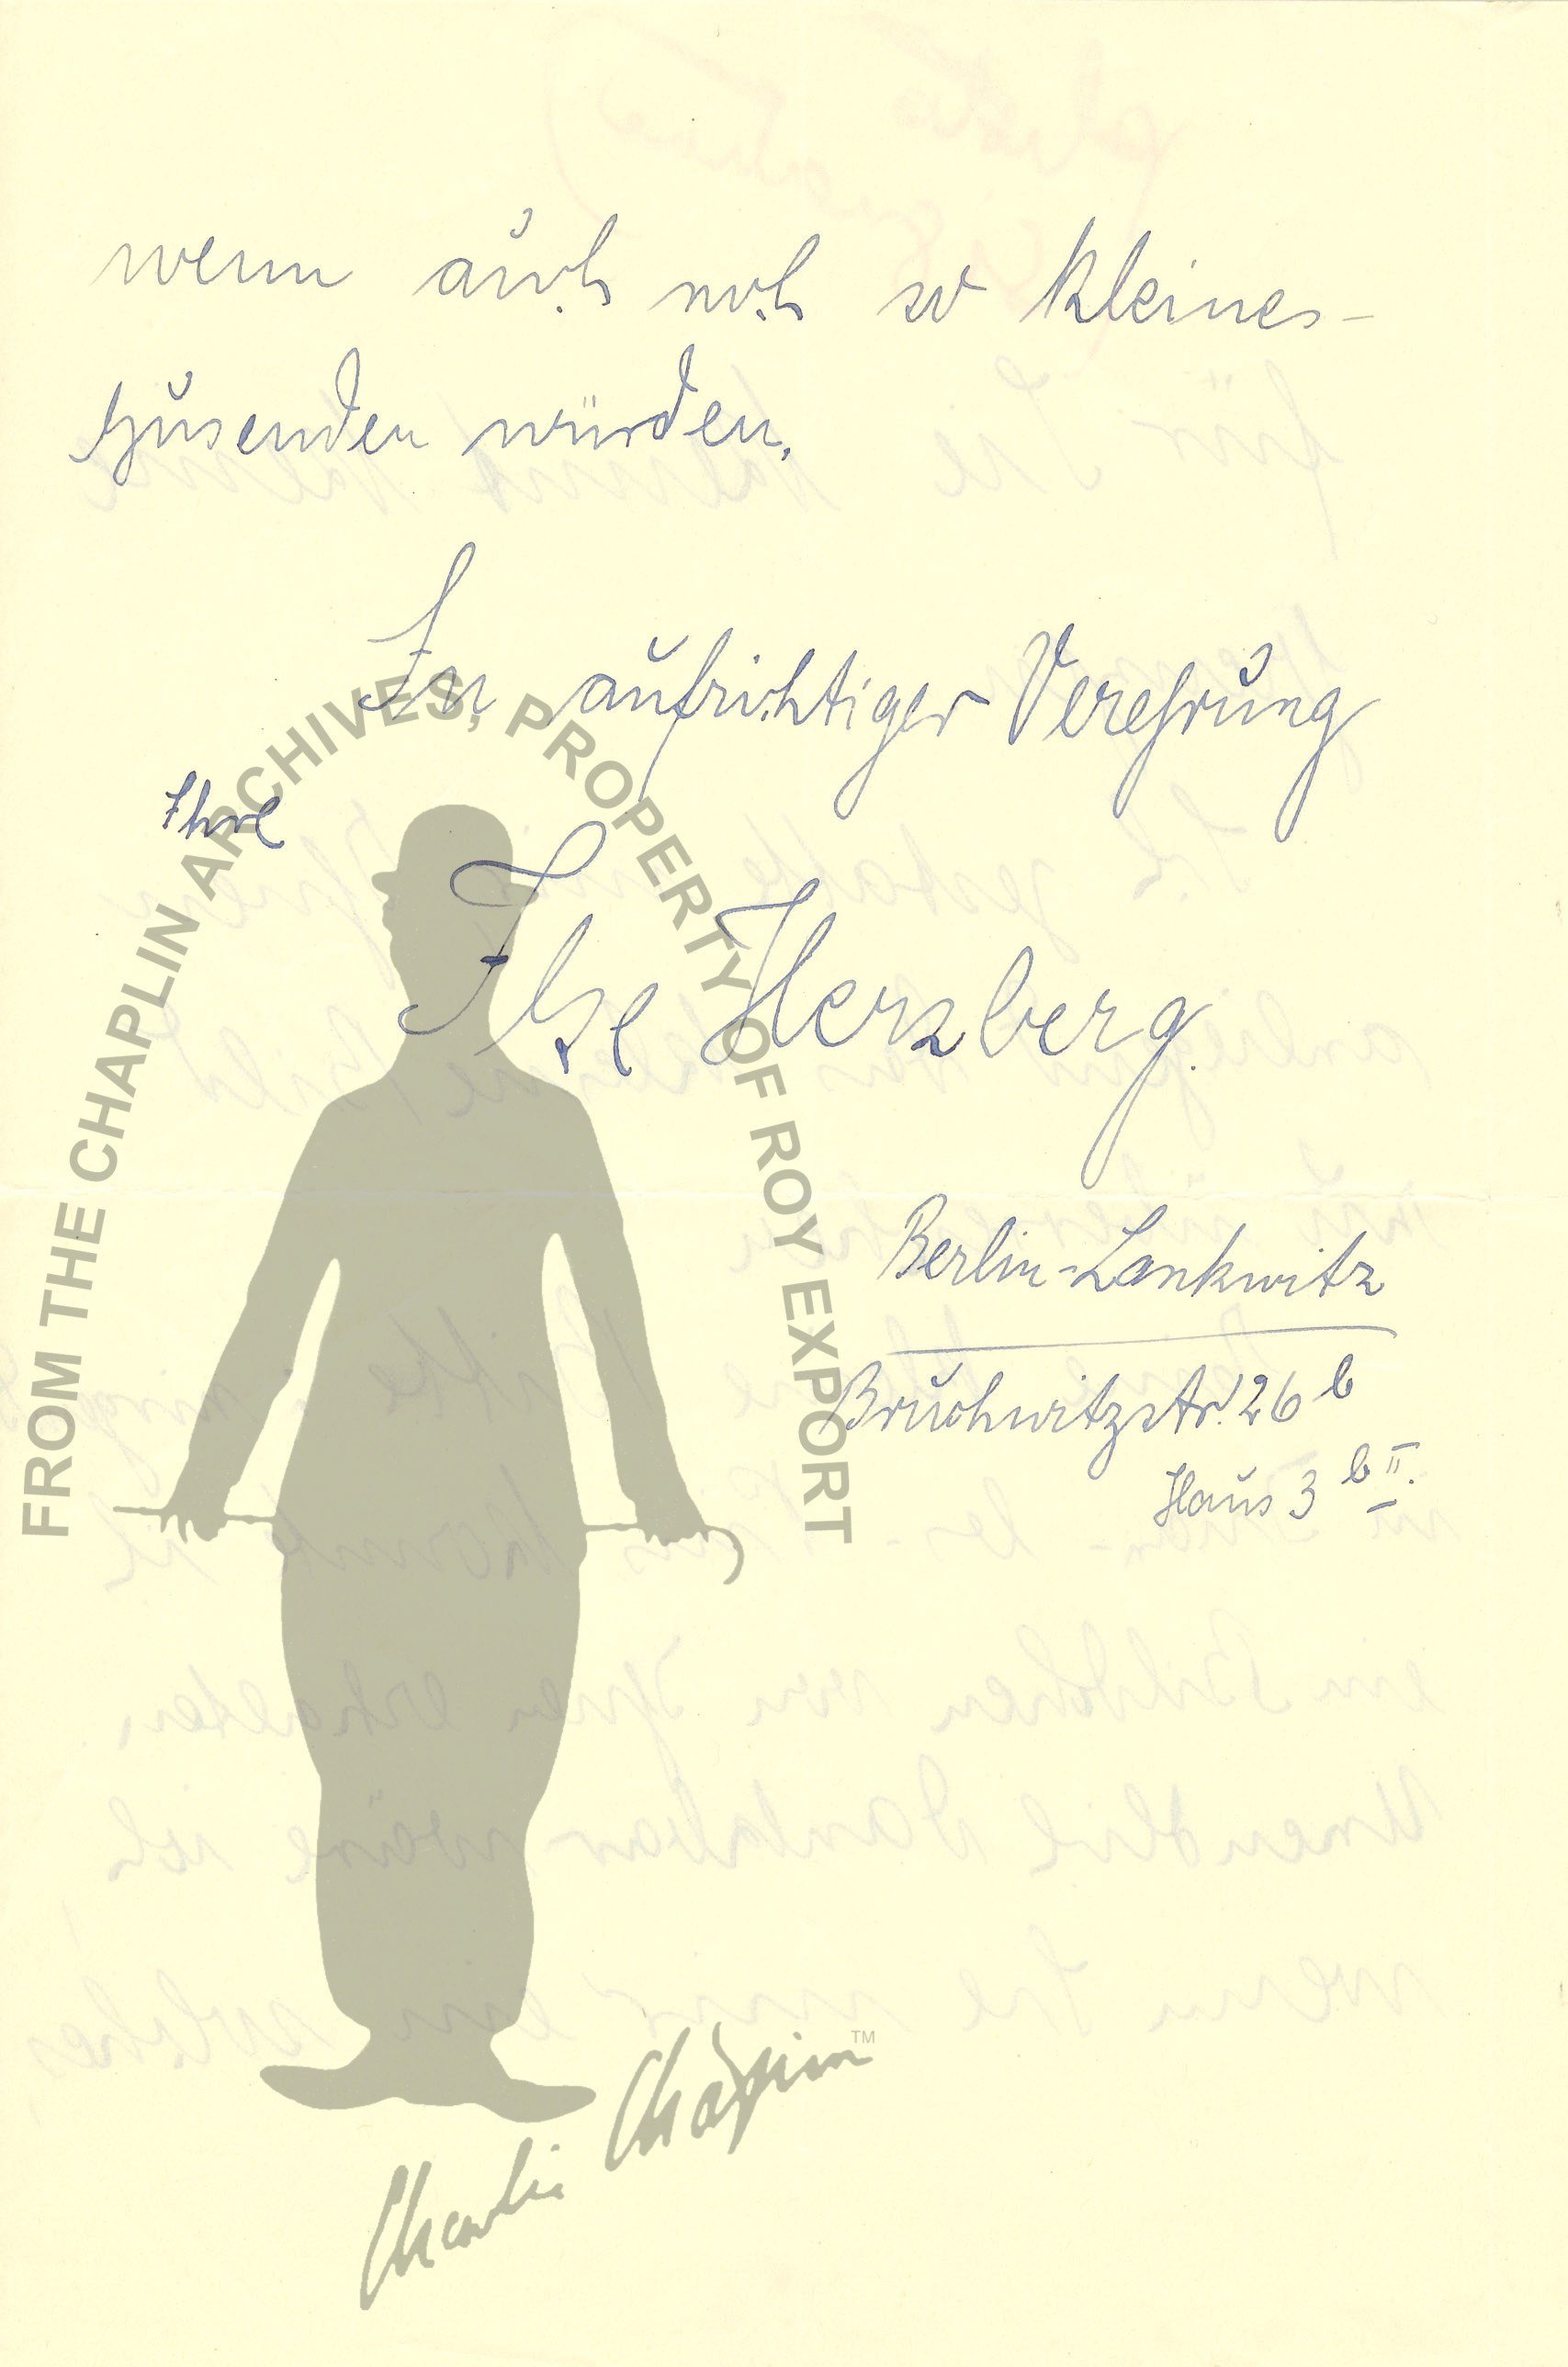 wenn auch noch so kleines-
zusenden würden.
In aufrichtiger Verehrung
Ihre
Ilse Herzberg.
Berlin-Lankwitz
Bruchwitzstr. 26 b
Haus 3 b II.
FROM THE CHAPLIN ARCHIVES, PROPERTY OF ROY EXPORT
Charlie Chaplin TM